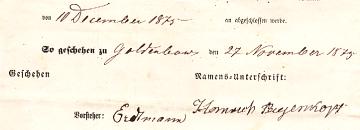 von 10 December 1875 an abgeschlossen werde.
So geschehen zu Goldenbow den 27 November 1875
Geschehen Namens-Unterschrift:
Vorsteher: Erdtmann Heinrich Piegenkopf